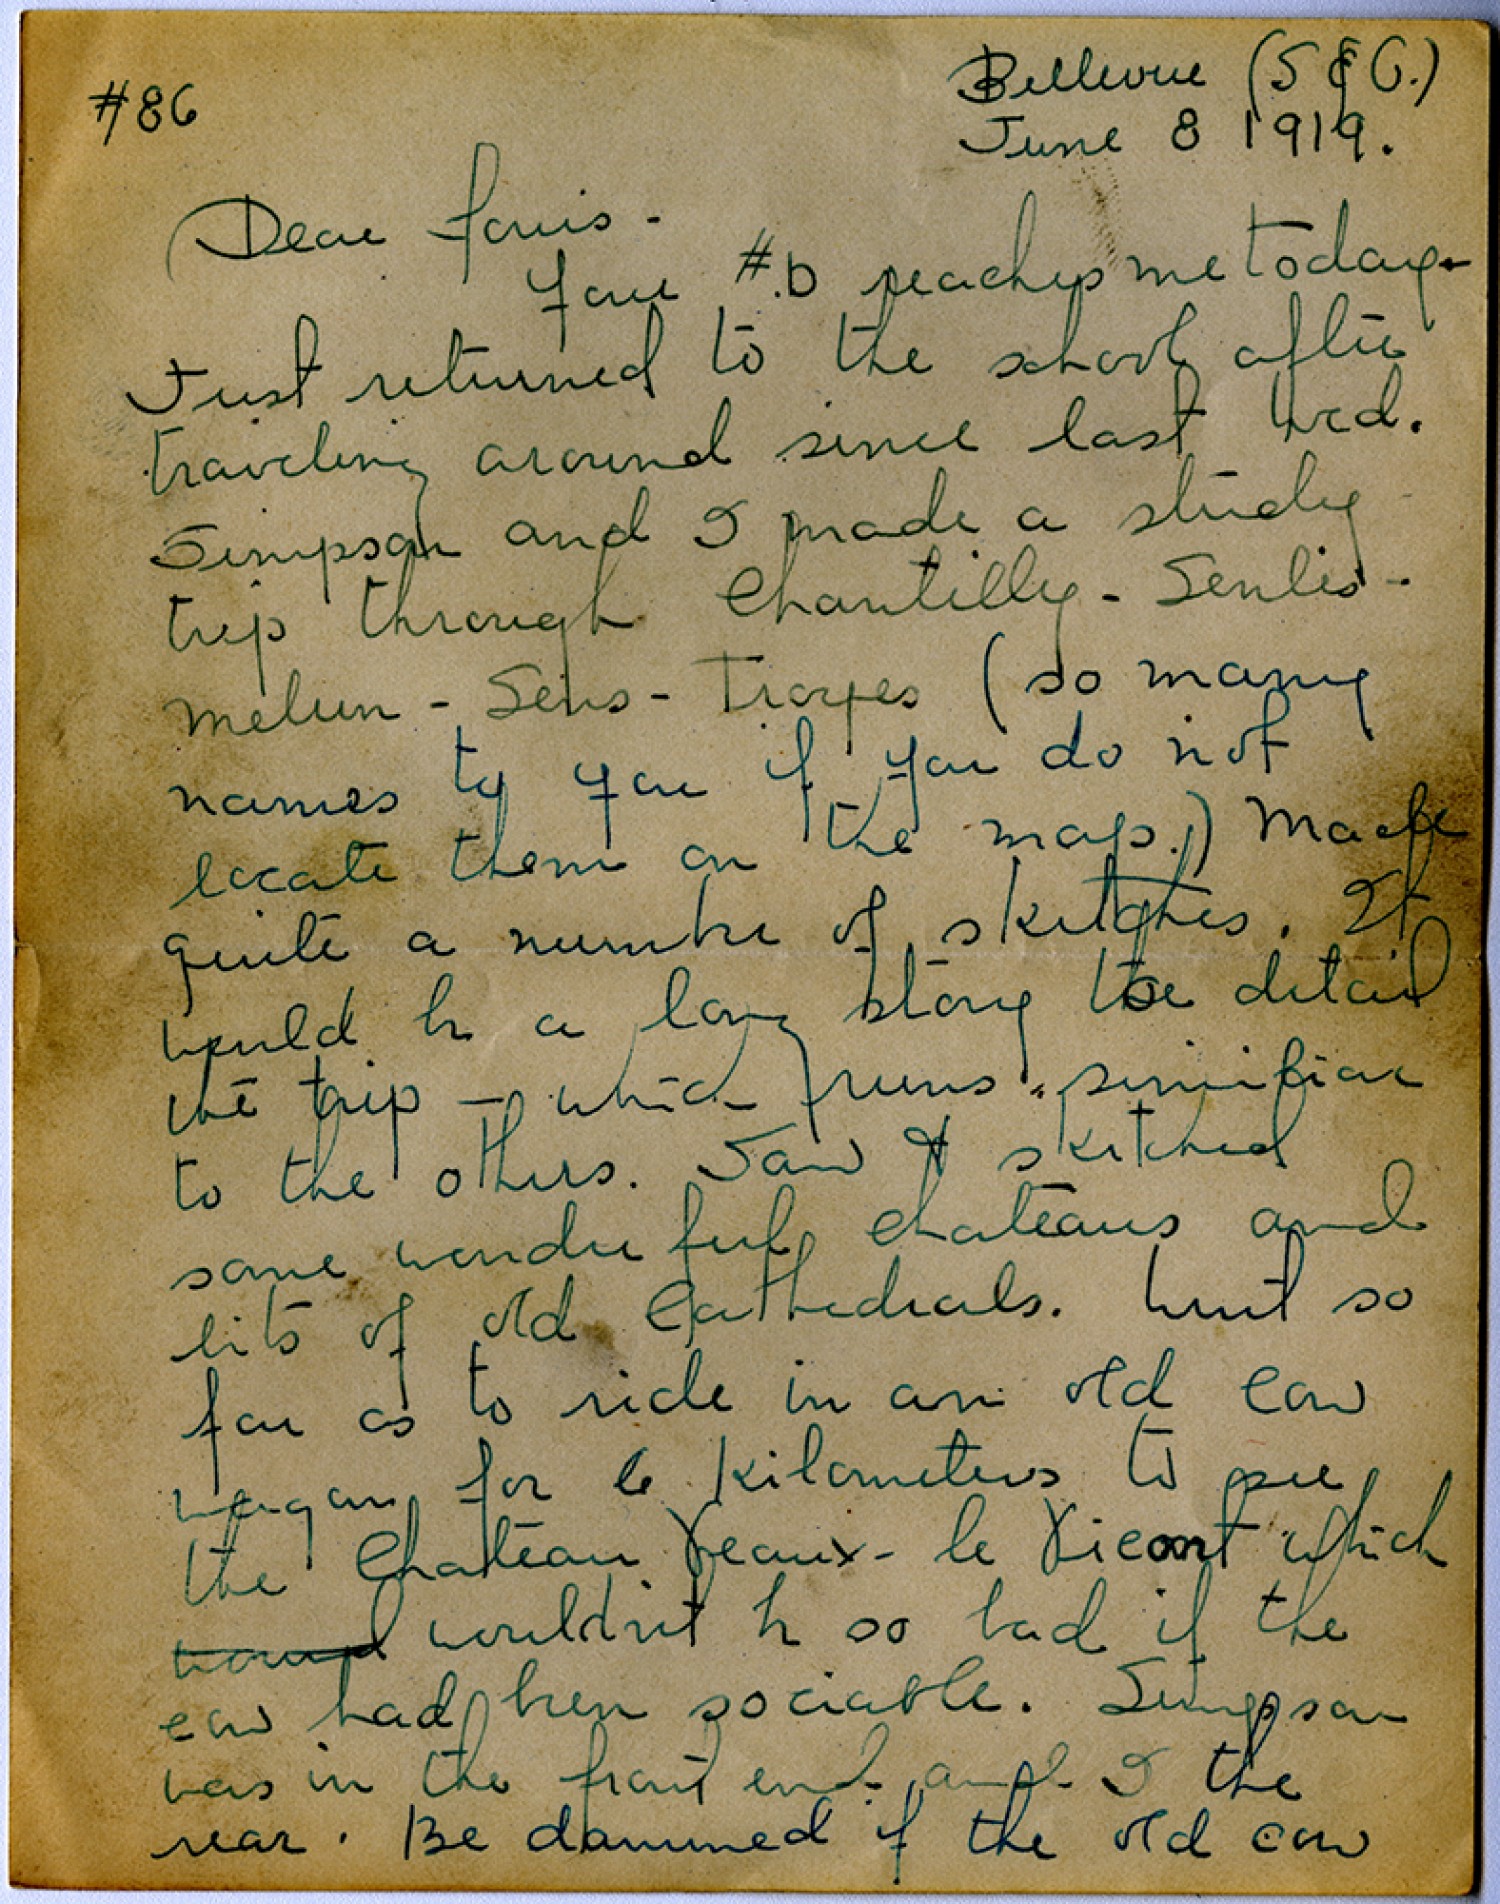 #86
Bellevue (S & O.)
June 8 1919.
Dear Louis -
Your #.b reaches me today -
Just returned to the school after
traveling around since last Wed.
Simpson and I made a study
trip through Chantilly - Senlis -
Melun - Sens - Troyes (so many
names to you if you do not
locate them on the map.) Made
quite a number of sketches. It
would be a long story to detail
the trip - which runs similiar
to the others. Saw & sketched
some wonderful chateaus and
bits of old Cathedrals. Went so
far as to ride in an old cow
wagon for 6 kilometers to see
the Chateau Veaux - le Vicomt which
wouldn't be so bad if the
cow had been sociable. Simpson
was in the front end and I the
rear. Be dammed if the old cow